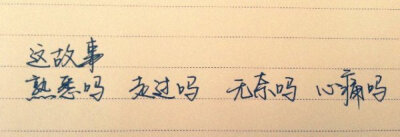 这故事
熟悉吗 走过吗 无奈吗 心痛吗